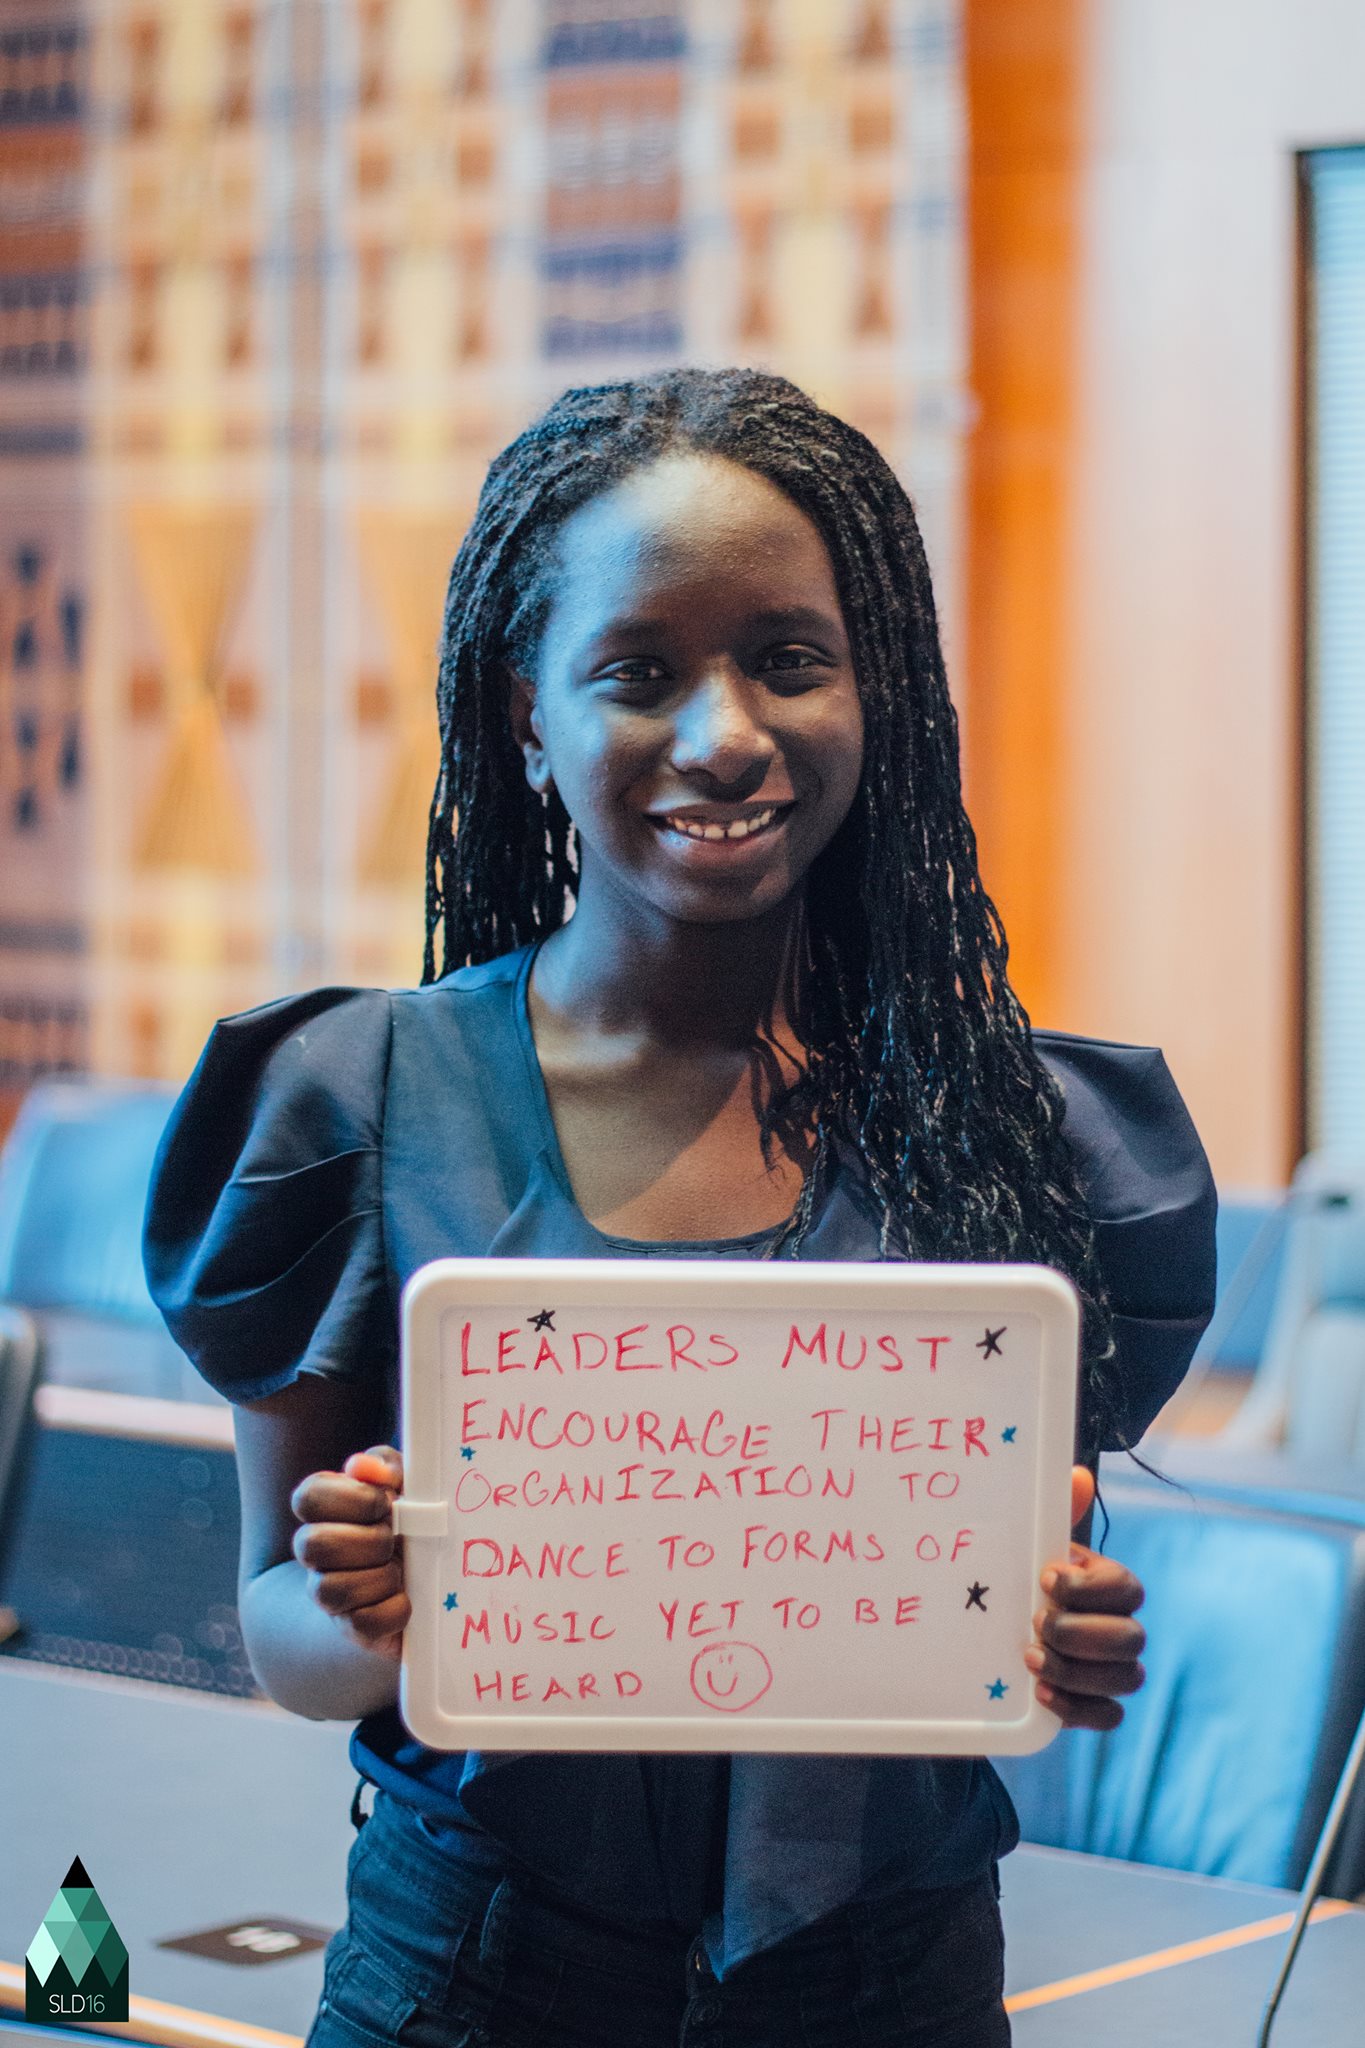 LEADERS MUST
ENCOURAGE THEIR
ORGANIZATION TO
DANCE TO FORMS OF
MUSIC YET TO BE
HEARD
SLD16